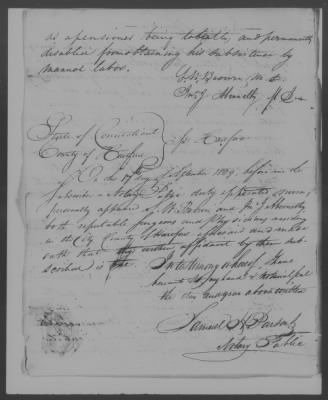 as a pensioner being totally, and permanently
disabled from obtaining his subsistence by
manual labor.
G. W. Brown M. D.
M. D.
State of Connecticut
County of Hartford } ss Hartford
On the 17 day of September 1829, before me the
subscriber a Notary Public duly appointed sworn,
personally appeared G. W. Brown and
both reputable surgeons and Physicians residing
in the City County of Hartford aforesaid and made
oath that the within affidavit by them sub-
scribed is true.
In testimony whereof, I have
hereunto set my hand & notarial seal
the day and year above written
Samuel H. Parsons
Notary Public